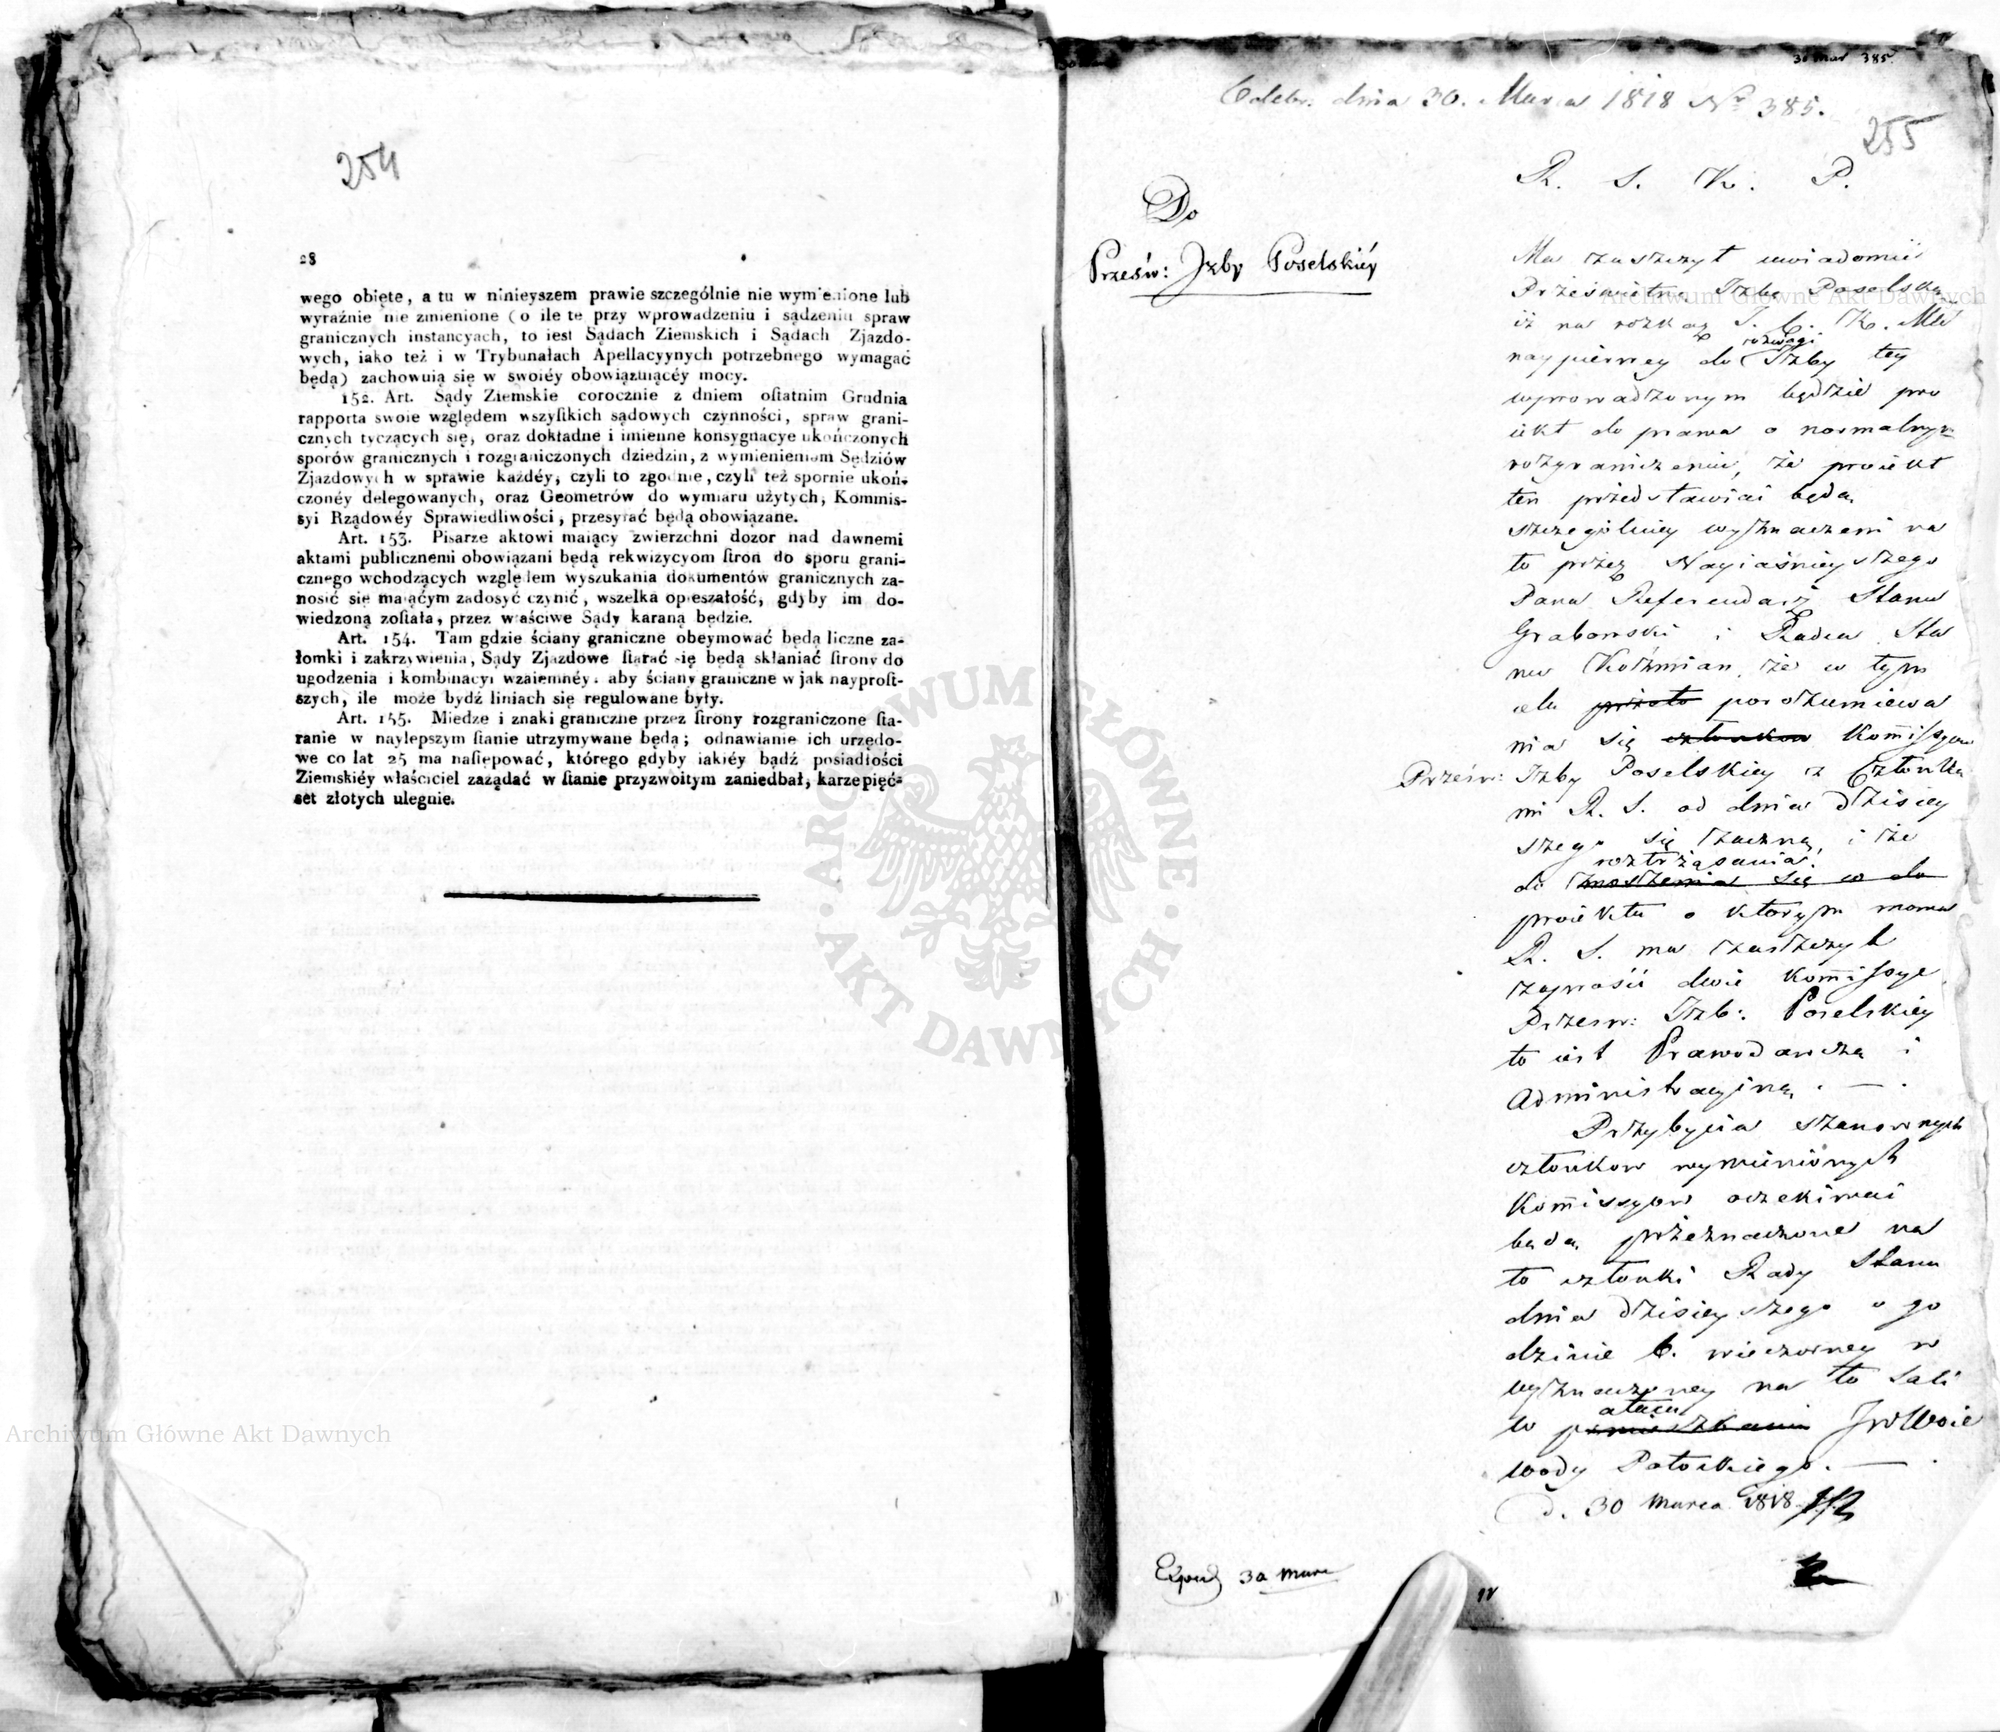 254
28
wego obięte, a tu w ninieyszem prawie szczególnie nie wymienione lub
wyraźnie nie zmienione (o ile te przy wprowadzeniu i sądzeniu spraw
granicznych instancyach, to iest Sądach Ziemskich i Sądach Zjazdo-
wych, iako też i w Trybunałach Apellacyynych potrzebnego wymagać
będą) zachowuią się w swoiéy obowiązuiącéy mocy.
152. Art. Sądy Ziemskie corocznie z dniem ostatnim Grudnia
rapporta swoie względem wszystkich sądowych czynności, spraw grani-
cznych tyczących się, oraz dokładne i imienne konsygnacye ukończonych
sporów granicznych i rozgraniczonych dziedzin, z wymienieniem Sędziów
Zjazdowych w sprawie każdéy, czyli to zgodnie, czyli też spornie ukoń-
czonéy delegowanych, oraz Geometrów do wymiaru użytych, Kommis-
syi Rządowéy Sprawiedliwości, przesyłać będą obowiązane.
Art. 153. Pisarze aktowi maiący zwierzchni dozor nad dawnemi
aktami publicznemi obowiązani będą rekwizycyom stron do sporu grani-
cznego wchodzących względem wyszukania dokumentów granicznych za-
nosić się maiąćym zadosyć czynić, wszelka opieszałość, gdyby im do-
wiedzoną została, przez właściwe Sądy karaną będzie.
Art. 154. Tam gdzie ściany graniczne obeymować będą liczne za-
łomki i zakrzywienia, Sądy Zjazdowe starać się będą skłaniać strony do
ugodzenia i kombinacyi wzaiemnéy, aby ściany graniczne w jak nayprost-
szych, ile może bydź liniach się regulowane były.
Art. 155. Miedze i znaki graniczne przez strony rozgraniczone sta-
ranie w naylepszym stanie utrzymywane będą; odnawianie ich urzędo-
we co lat 25 ma następować, którego gdyby iakiéy bądź posiadłości
Ziemskiéy właściciel zażądać w stanie przyzwoitym zaniedbał, karze pięć-
set złotych ulegnie.
30 mar 385.
Odebr. dnia 30. Marca 1818 Nr 385.
255
R. S. K. P.
Do
Prześw: Jzby Poselskiéy
Ma zaszczyt uwiadomić
Prześwietną Izbę Poselską
iż na rozkaz J. C. K. Mci
naypierwey do rozwagi Izby tey
wprowadzonym będzie pro
iekt do prawa o normalnym
rozgraniczeniu, że proiekt
ten przedstawiać będą
szczególniey wyznaczeni na
to przez Nayiaśnieyszego
Pana Referendarz Stanu
Grabowski i Radca Sta
nu Koźmian, że w tym
celu przeto porozumiewa
nia się członkow Kommissyow
Prześw: Izby Poselskiey z Członka
mi R. S. od dnia dzisiey
szego się zaczną, i że
roztrząsania
do znoszenia się w do
proiektu o ktorym mowa
R. S. ma zaszczyt
zaprosić dwie Kommissye
Przesw: Izb: Poselskiey
to iest Prawodawczą i
Administracyiną. —
Przybycia szanownych
członkow wymienionych
Kommissyow oczekiwać
będą przeznaczone na
to członki Rady Stanu
dnia dzisieyszego o go
dzinie 6. wieczorney w
wyznaczoney na to Sali
w pałacu pomieszkaniu JWWoie
wody Potockiego. —
d. 30 Marca 1818
Exped 30 Marc
Archiwum Główne Akt Dawnych
Archiwum Główne Akt Dawnych
ARCHIWUM GŁÓWNE · AKT DAWNYCH ·